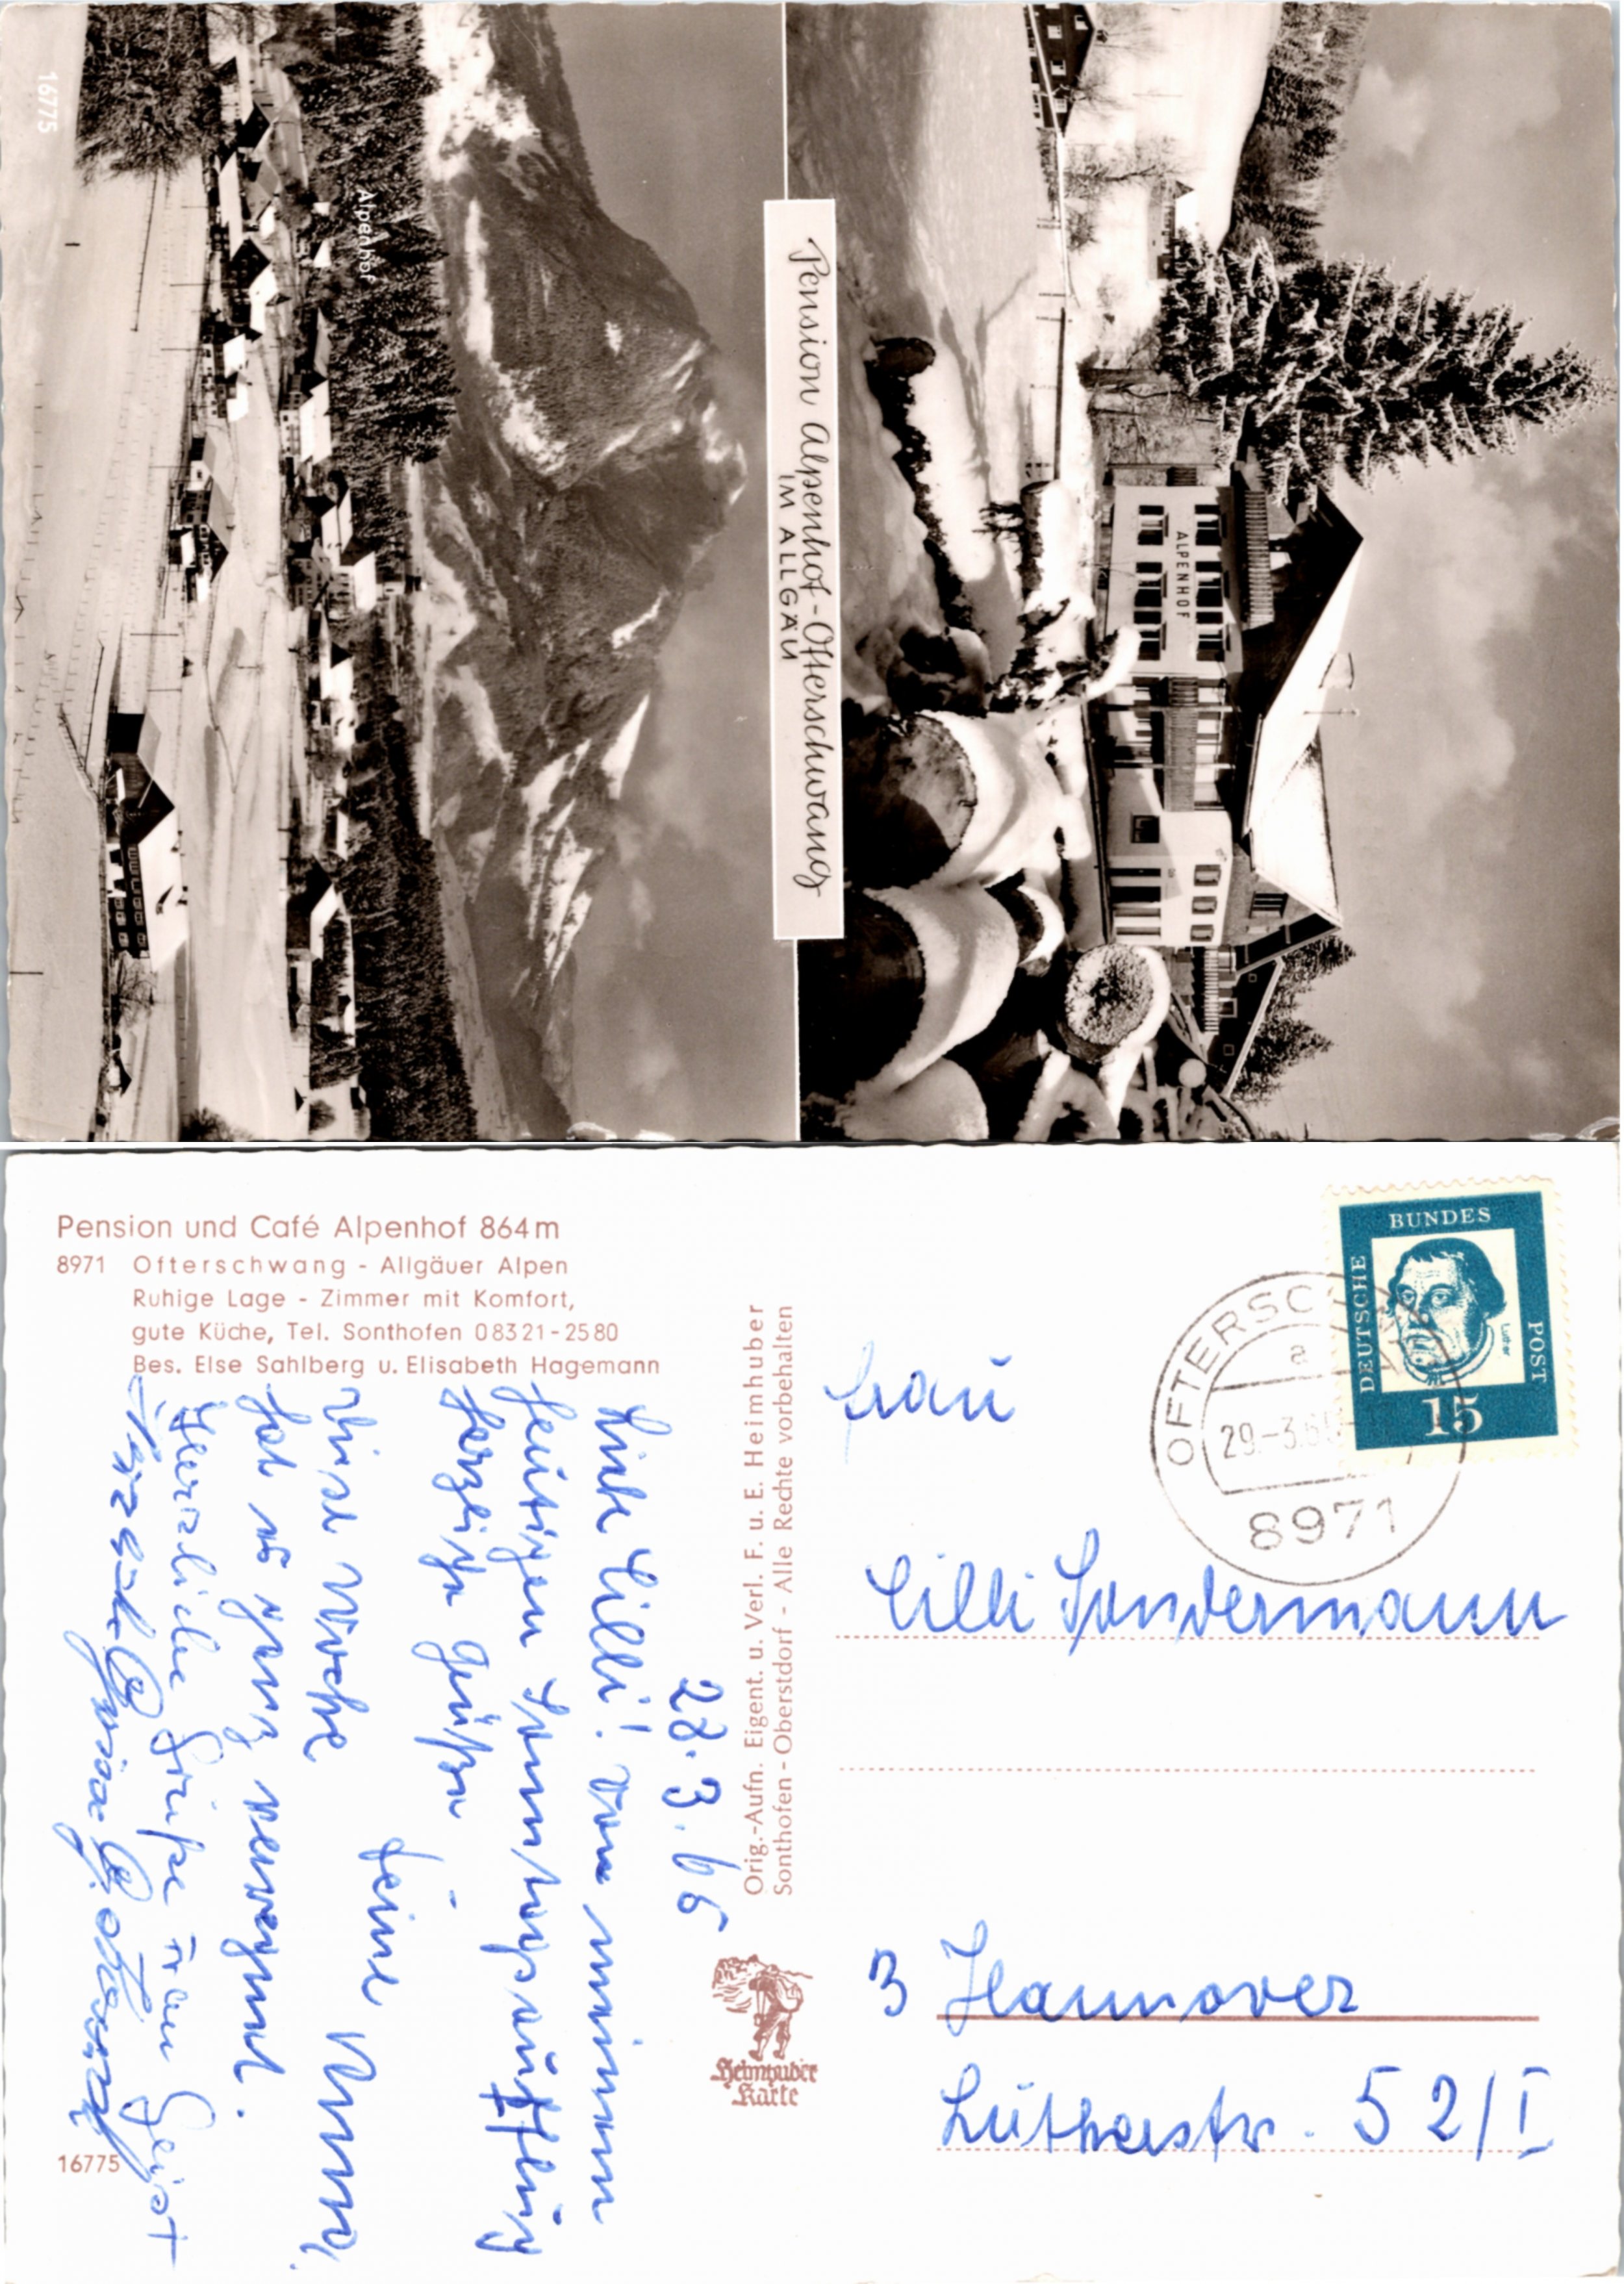 16775
Alpenhof
Pension Alpenhof-Ofterschwang
IM ALLGÄU
ALPENHOF
Pension und Café Alpenhof 864m
8971 Ofterschwang - Allgäuer Alpen
Ruhige Lage - Zimmer mit Komfort,
gute Küche, Tel. Sonthofen 08321-2580
Bes. Else Sahlberg u. Elisabeth Hagemann
28.3.65
Liebe Cilli! Von meinem
heutigen Sonntagsausflug
herzliche Grüße
Deine
Diese Woche
hat es ganz verregnet.
Herzliche Grüße Frau Geist
Orig.-Aufn. Eigent. u. Verl. F. u. E. Heimhuber
Sonthofen - Oberstdorf - Alle Rechte vorbehalten
Heimhuber
Karte
16775
DEUTSCHE
BUNDES
POST
Luther
15
OFTERSC
a
29.-3.65
8971
Frau
Cilli Sondermann
3 Hannover
Lutherstr. 52/I